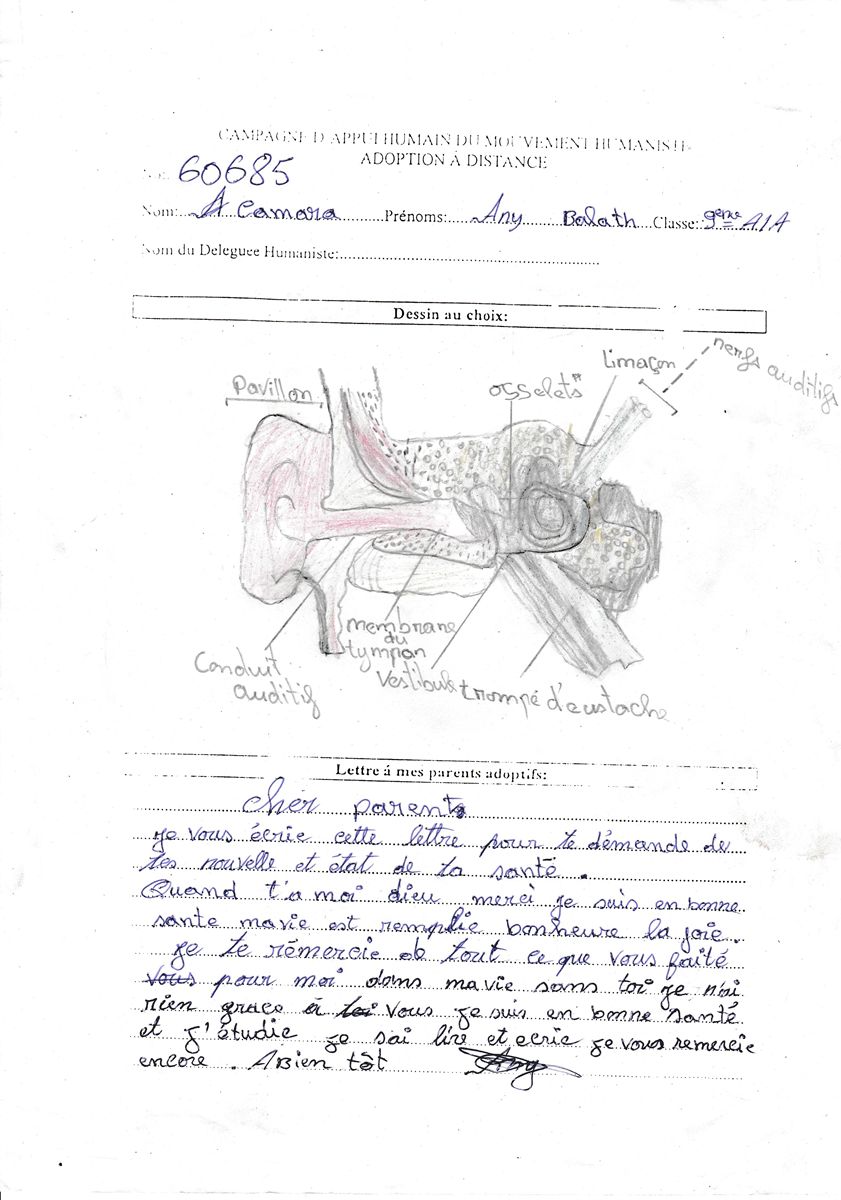 CAMPAGNE D'APPUI HUMAIN DU MOUVEMENT HUMANISTE
ADOPTION À DISTANCE
60685
Nom: A Camara Prénoms: Any Balath Classe: 9eme A1A
Nom du Deleguee Humaniste:
Dessin au choix:
Limaçon
nerfs auditifs
Pavillon
osselets
membrane
du
tympan
Conduit
auditif
Vestibule
trompé d'eustache
Lettre á mes parents adoptifs:
cher parents
je vous écrie cette lettre pour te démande de
tes nouvelle et état de ta santé.
Quand t'a moi dieu merci je suis en bonne
sante ma vie est remplie bonheure la joie.
je te rémercie de tout ce que vous faité
vous pour moi dans ma vie sans toi je n'ai
rien grace à toi vous je suis en bonne santé
et j'étudie je sai lire et ecrie je vous remercie
encore. ABien tôt Any